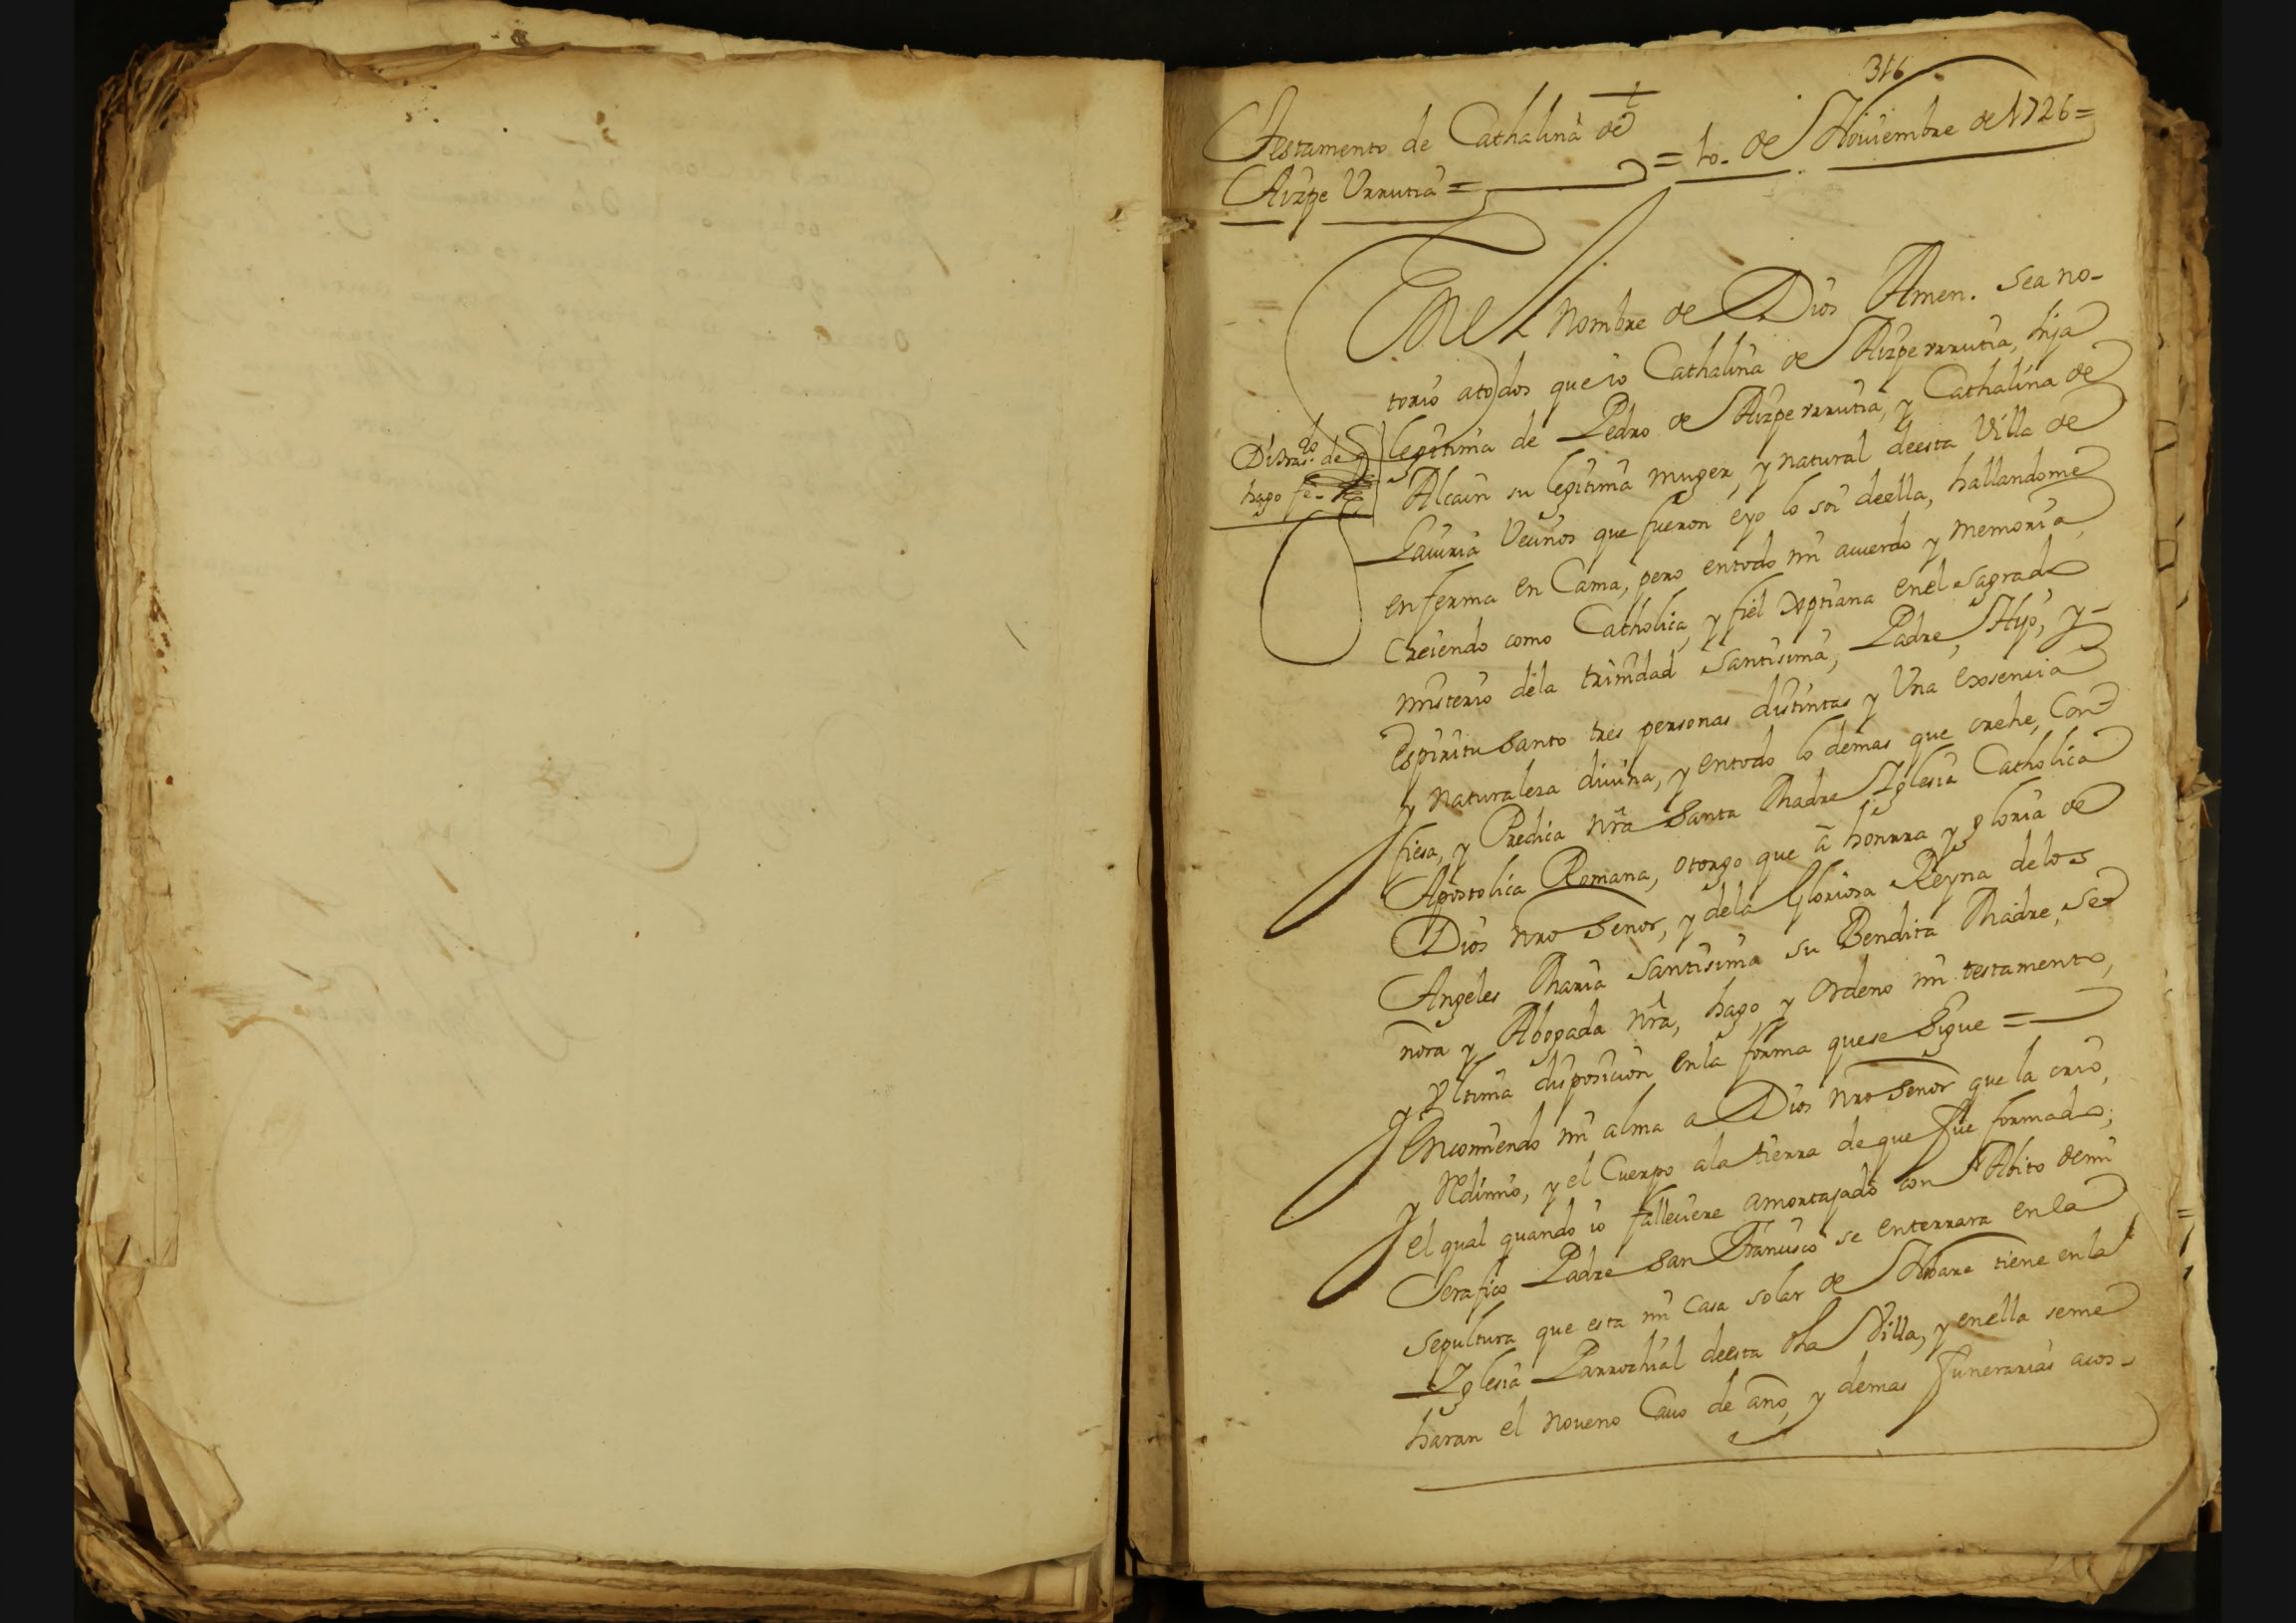 316
Testamento de Cathalina de
Aizpe Urrutia = = 10. de Noviembre de 1726 =
En el nombre de Dios Amen. Sea no-
torio atodos que io Cathalina de Aizperrutia, hija
legitima de Pedro de Aizperrutia, y Cathalina de
Alcain su legitima muger, y natural deesta Villa de
hago fe
Vecinos que fueron eyo lo soi deella, hallandome
enferma en Cama, pero entodo mi acuerdo y memoria,
Creiendo como Catholica, y fiel Xptiana enel sagrado
misterio dela trinidad Santisima, Padre, Hijo, y-
Espiritu Santo tres personas distintas y Una exsencia
y naturaleza divina, y entodo lo demas que crehe, Con
fiesa, y Predica nra Santa Madre Iglesia Catholica
Apostolica Romana, otorgo que à honrra y gloria de
Dios nro Señor, y dela Gloriosa Reyna delos
Angeles Maria Santisima su Bendita Madre, Se
ñora y Abogada nra, hago, y Ordeno mi testamento,
y Ultima disposicion enla forma quese Sigue =
Encomiendo mi alma a Dios nro Señor que la crio,
y Redimio, y el Cuerpo ala tierra de que fue formado,
el qual quando io falleciere amortajado con Abito demi
Serafico Padre San Francisco se enterrara enla
Sepultura que esta mi Casa solar de tiene enla
Iglesia Parrochial deesta dha Villa, y enella seme
haran el noveno Cavo de año, y demas funerarias acos-